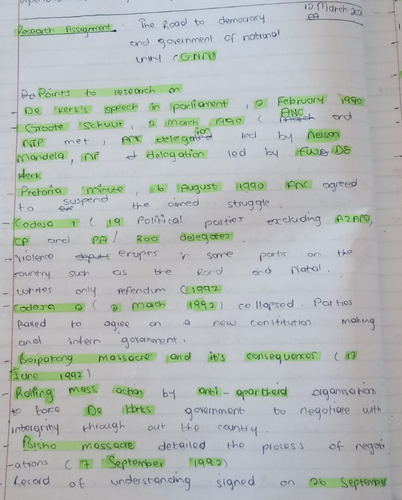 12 March 20
Research Assignment. The Road to democracy
and government of national
unity (GNN)
Points to research on
De Kerk's speech in parliament, 2 February 1990
Groote Schuur, 2 March 1990 ( ANC and
NP met, ANC delegation led by Nelson
Mandela, NP delegation led by FW De
Kerk
Pretoria Minute, 6 August 1990 ANC agreed
to suspend the armed struggle.
Codesa 1 ( 19 Political parties excluding AZAPO,
CP and PA/ 300 delegates.
Violence erupts in some parts on the
country such as the Rand and Natal.
Whites only refendum (1992
Codesa 2 ( 2 March 1992) collapsed. Parties
Failed to agree on a new constitution making
and intern government.
Boipatong massacre and it's consequences ( 17
June 1992)
Rolling mass action by anti-apartheid organisations
to force De Klerks government to negotiate with
intergrity through out the country.
Bisho massacre detailed the process of negoti
-ations ( 7 September 1992)
Record of understanding signed on 26 September